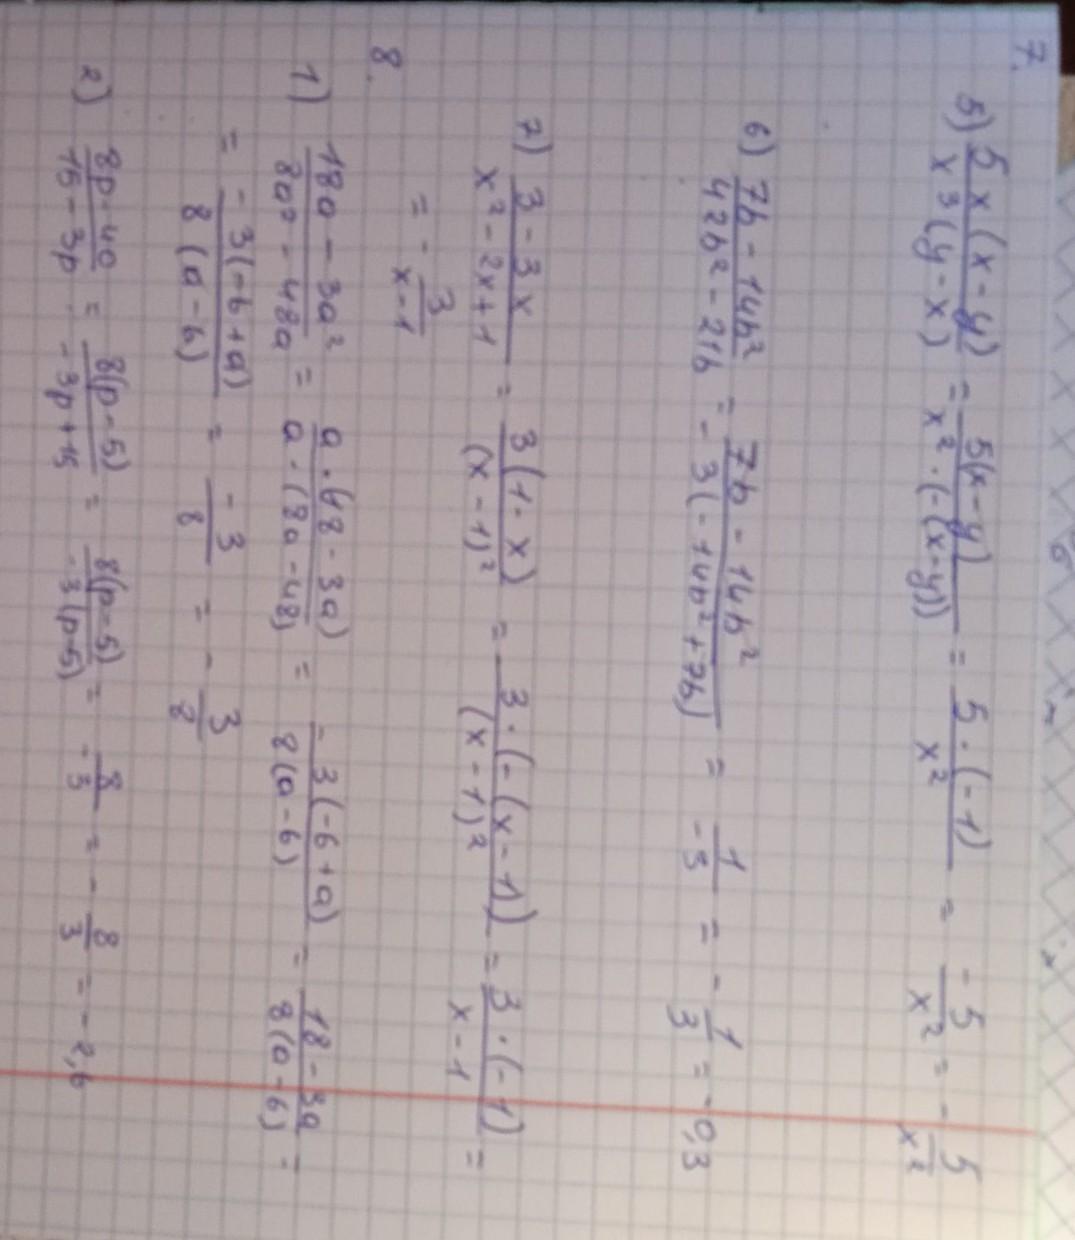 7.
5) 5x(x-y) / x³(y-x) = 5(x-y) / x²·(-(x-y)) = 5·(-1) / x² = -5 / x² = - 5 / x²
6) 7b-14b² / 42b²-21b = 7b-14b² / -3(-14b²+7b) = 1 / -3 = - 1/3 = -0,3
7) 3-3x / x²-2x+1 = 3(1-x) / (x-1)² = 3·(-(x-1)) / (x-1)² = 3·(-1) / x-1 =
= - 3 / x-1
8.
1) 18a-3a² / 8a²-48a = a·(18-3a) / a·(8a-48) = -3(-6+a) / 8(a-6) = 18-3a / 8(a-6) =
= -3(-6+a) / 8(a-6) = -3 / 8 = - 3/8
2) 8p-40 / 15-3p = 8(p-5) / -3p+15 = 8(p-5) / -3(p-5) = 8 / -3 = - 8/3 = -2,6